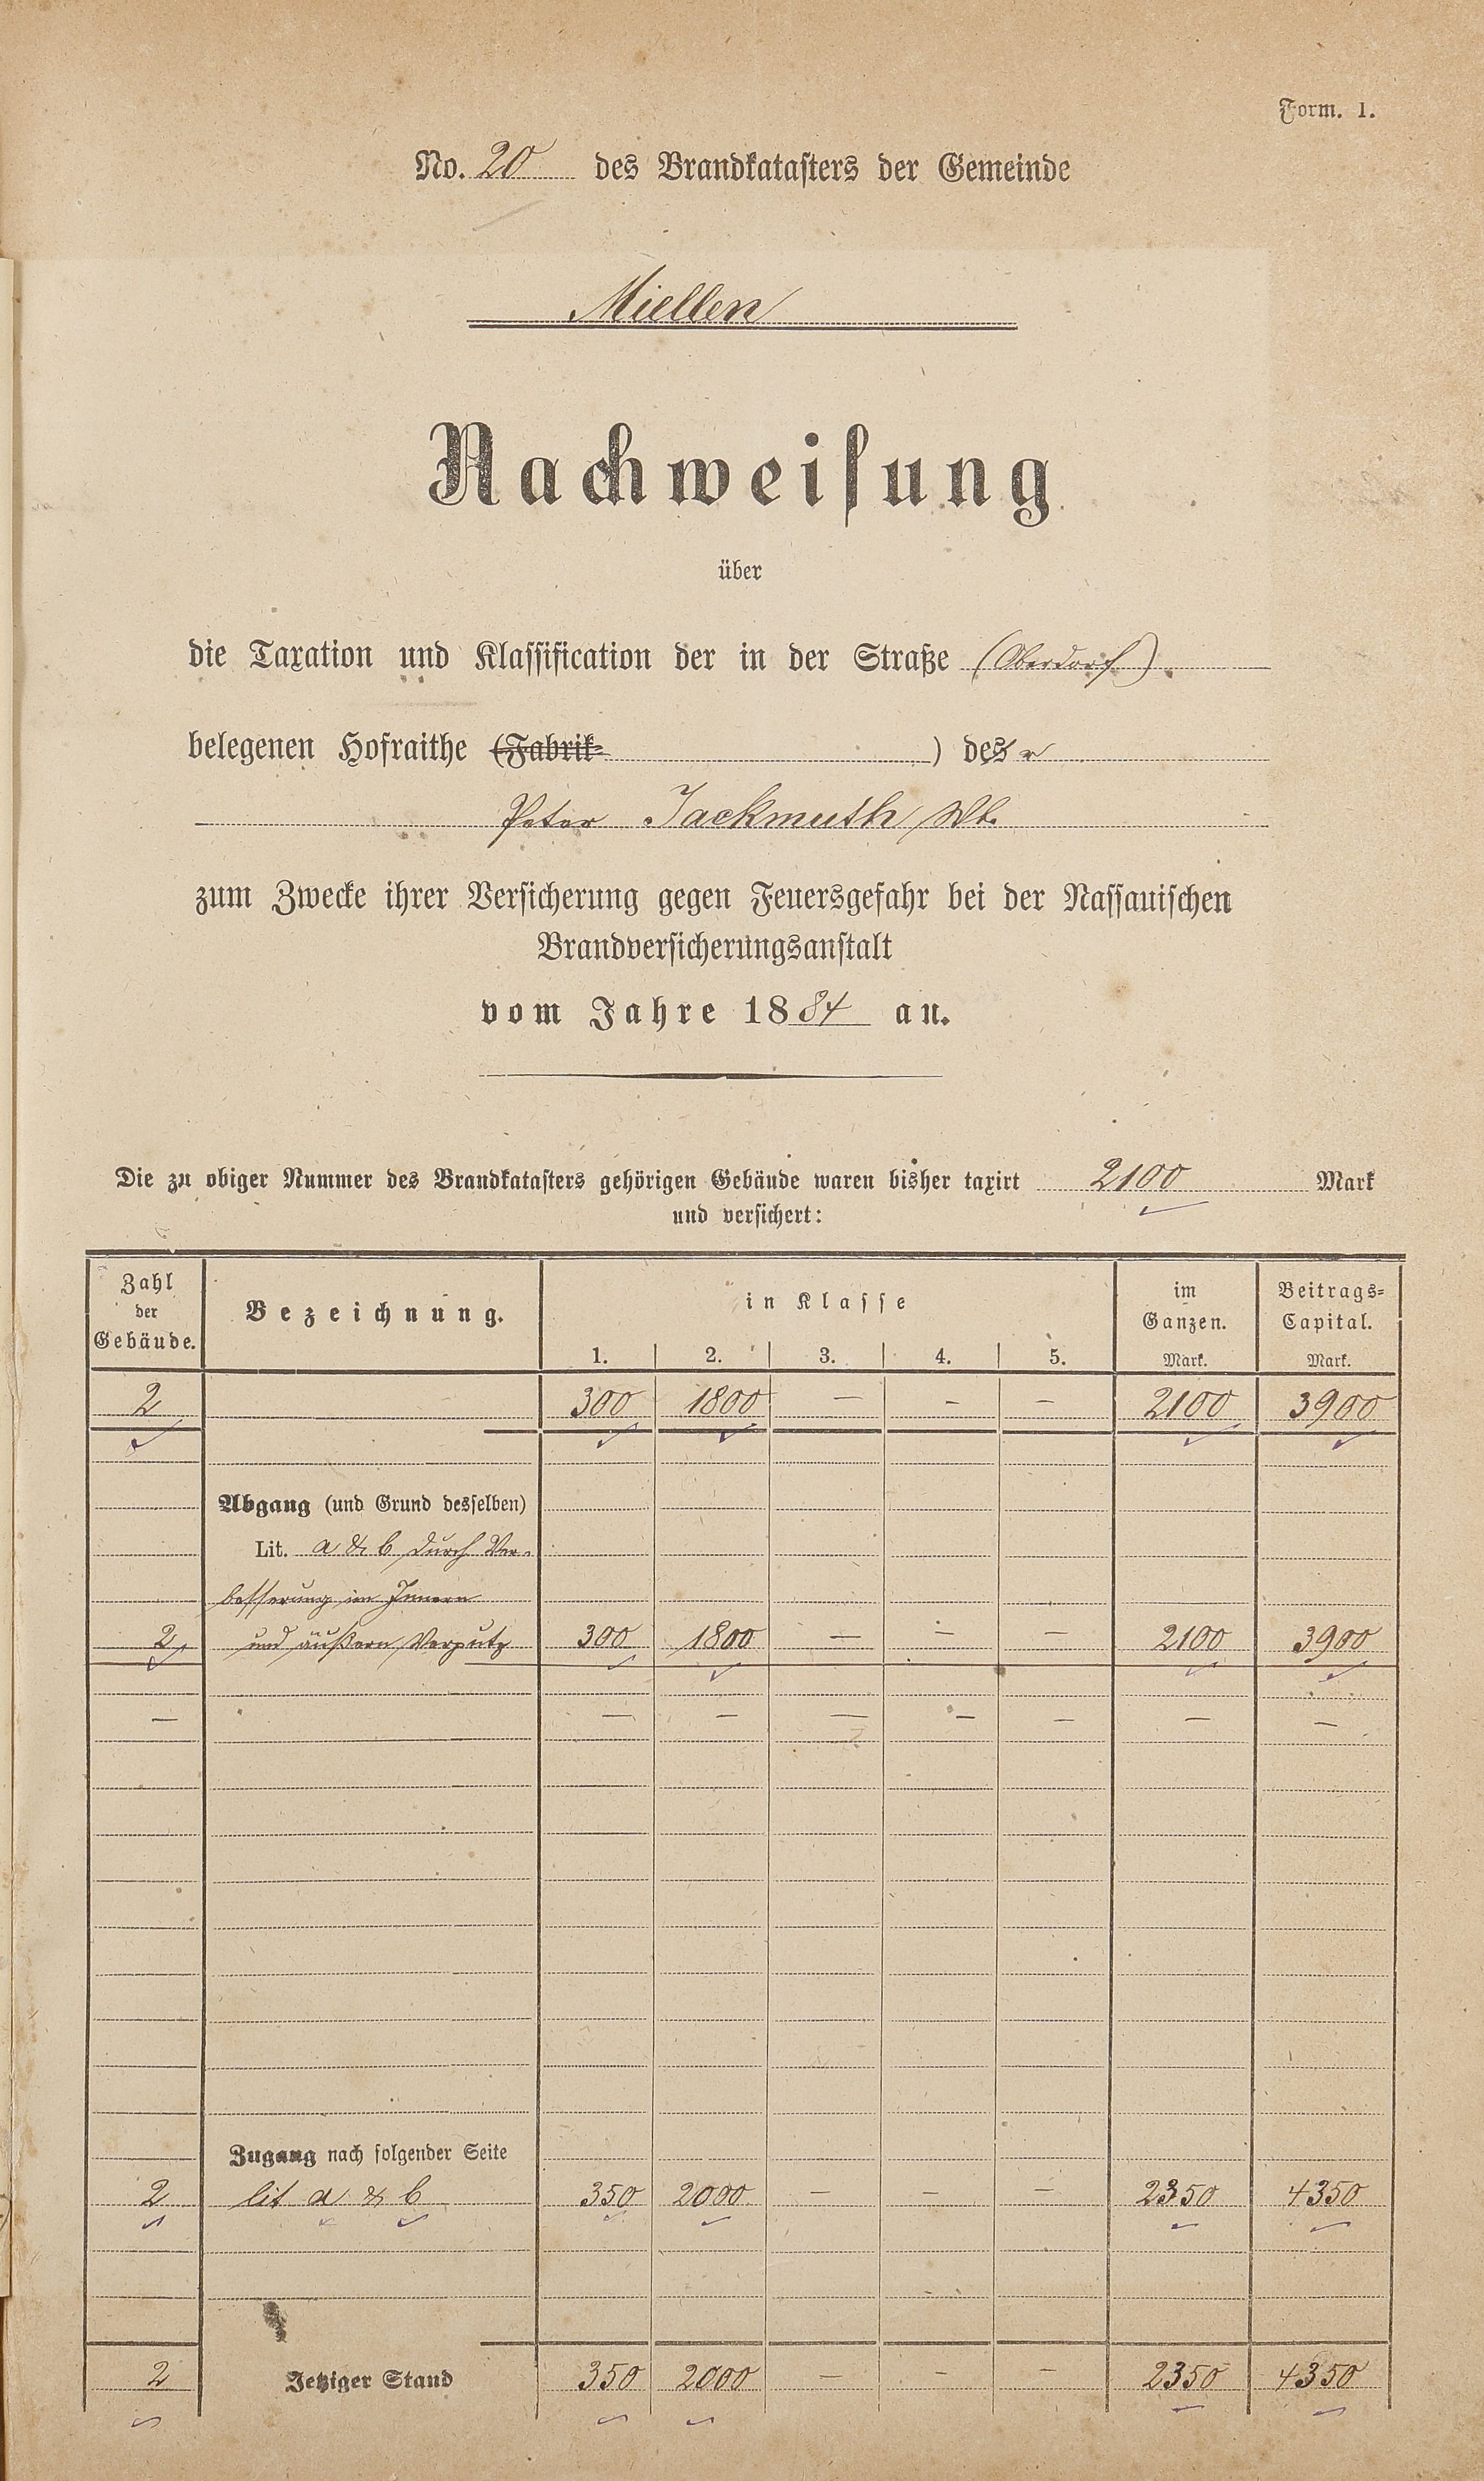 Form. 1.
No. 20 des Brandkatasters der Gemeinde
Miellen
Nachweisung
über
die Taxation und Klassification der in der Straße (Oberdorf)
belegenen Hofraithe (Fabrik- ) des r
Peter Jackmuth Wb.
zum Zwecke ihrer Versicherung gegen Feuersgefahr bei der Nassauischen
Brandversicherungsanstalt
vom Jahre 1884 an.
Die zu obiger Nummer des Brandkatasters gehörigen Gebäude waren bisher taxirt 2100 Mark
und versichert:
Zahl der Gebäude. Bezeichnung. in Klasse im Ganzen. Beitrags-Capital.
1. 2. 3. 4. 5. Mark. Mark.
2 300 1800 — — — 2100 3900
Abgang (und Grund desselben)
Lit. a & b durch Ver-
besserung im Innern
2 und äußern Verputz 300 1800 — — — 2100 3900
— — — — — — — —
Zugang nach folgender Seite
2 lit a & b 350 2000 — — — 2350 4350
2 Jetziger Stand 350 2000 — — — 2350 4350